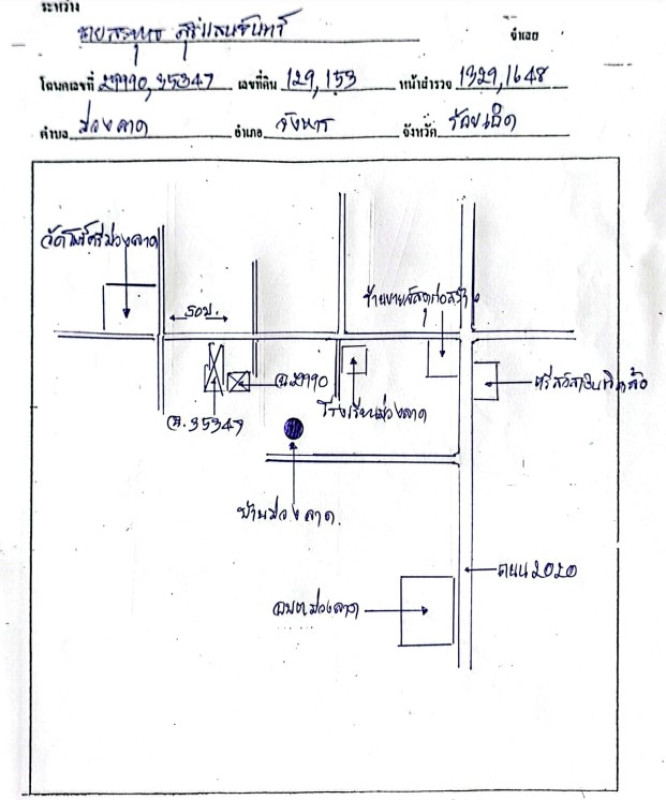 ระหว่าง
นายสราวุธ สุริแสนจันทร์ จำเลย
โฉนดเลขที่ 29990, 35347 เลขที่ดิน 129, 153 หน้าสำรวจ 1329, 1648
ตำบล ม่วงลาด อำเภอ จังหาร จังหวัด ร้อยเอ็ด
วัดโพธิ์ศรีม่วงลาด
50ม.
ร้านขายวัสดุก่อสร้าง
ฉ.29990
ฉ.35347
โรงเรียนม่วงลาด
บ้านม่วงลาด
ถนน 2020
อบตม่วงลาด